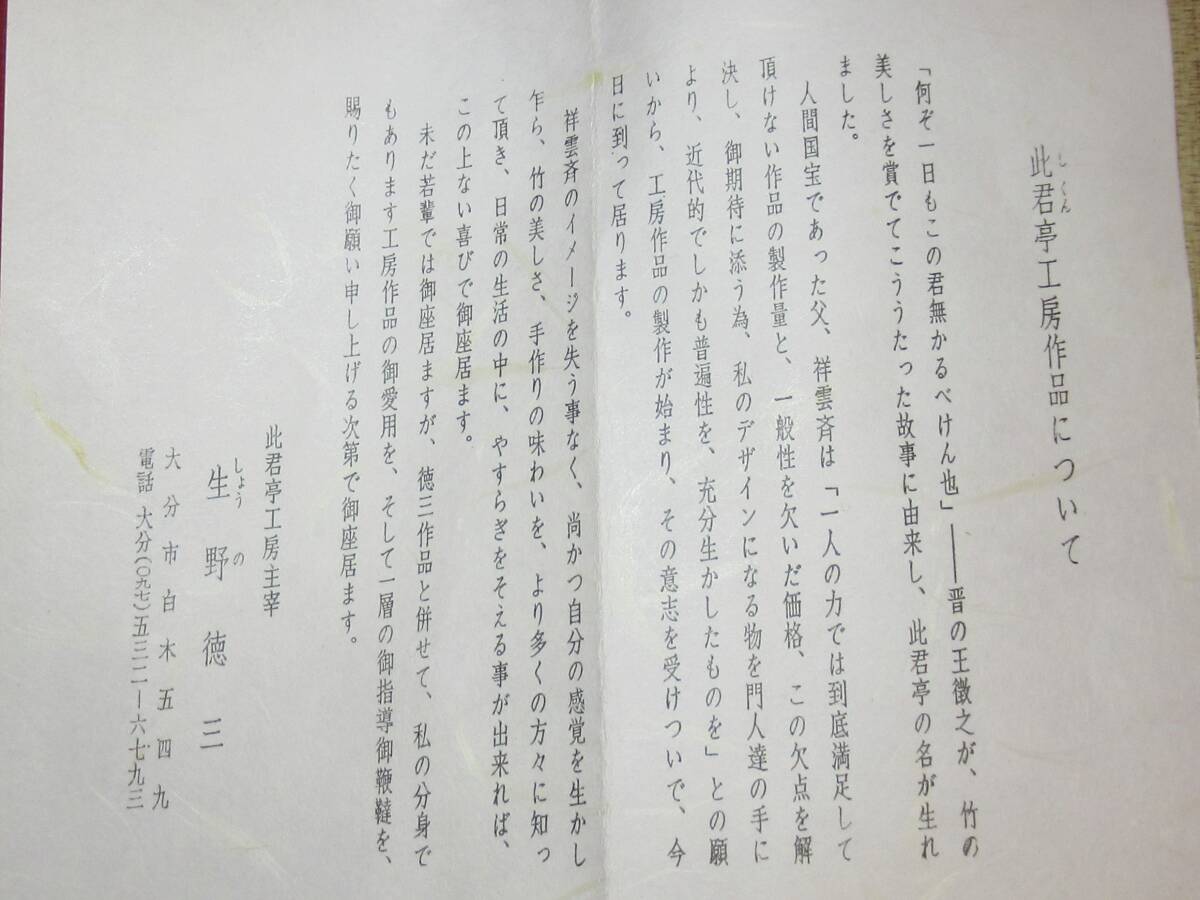 此君亭工房作品について
しくん
「何ぞ一日もこの君無かるべけん也」――晋の王徽之が、竹の
美しさを賞でてこううたった故事に由来し、此君亭の名が生れ
ました。
人間国宝であった父、祥雲斉は「一人の力では到底満足して
頂けない作品の製作量と、一般性を欠いだ価格、この欠点を解
決し、御期待に添う為、私のデザインになる物を門人達の手に
より、近代的でしかも普遍性を、充分生かしたものを」との願
いから、工房作品の製作が始まり、その意志を受けついで、今
日に到って居ります。
祥雲斉のイメージを失う事なく、尚かつ自分の感覚を生かし
乍ら、竹の美しさ、手作りの味わいを、より多くの方々に知っ
て頂き、日常の生活の中に、やすらぎをそえる事が出来れば、
この上ない喜びで御座居ます。
未だ若輩では御座居ますが、徳三作品と併せて、私の分身で
もあります工房作品の御愛用を、そして一層の御指導御鞭韃を、
賜りたく御願い申し上げる次第で御座居ます。
此君亭工房主宰
生野徳三
しょうの
大分市白木五四九
電話 大分(〇九七)五三二―六七九三